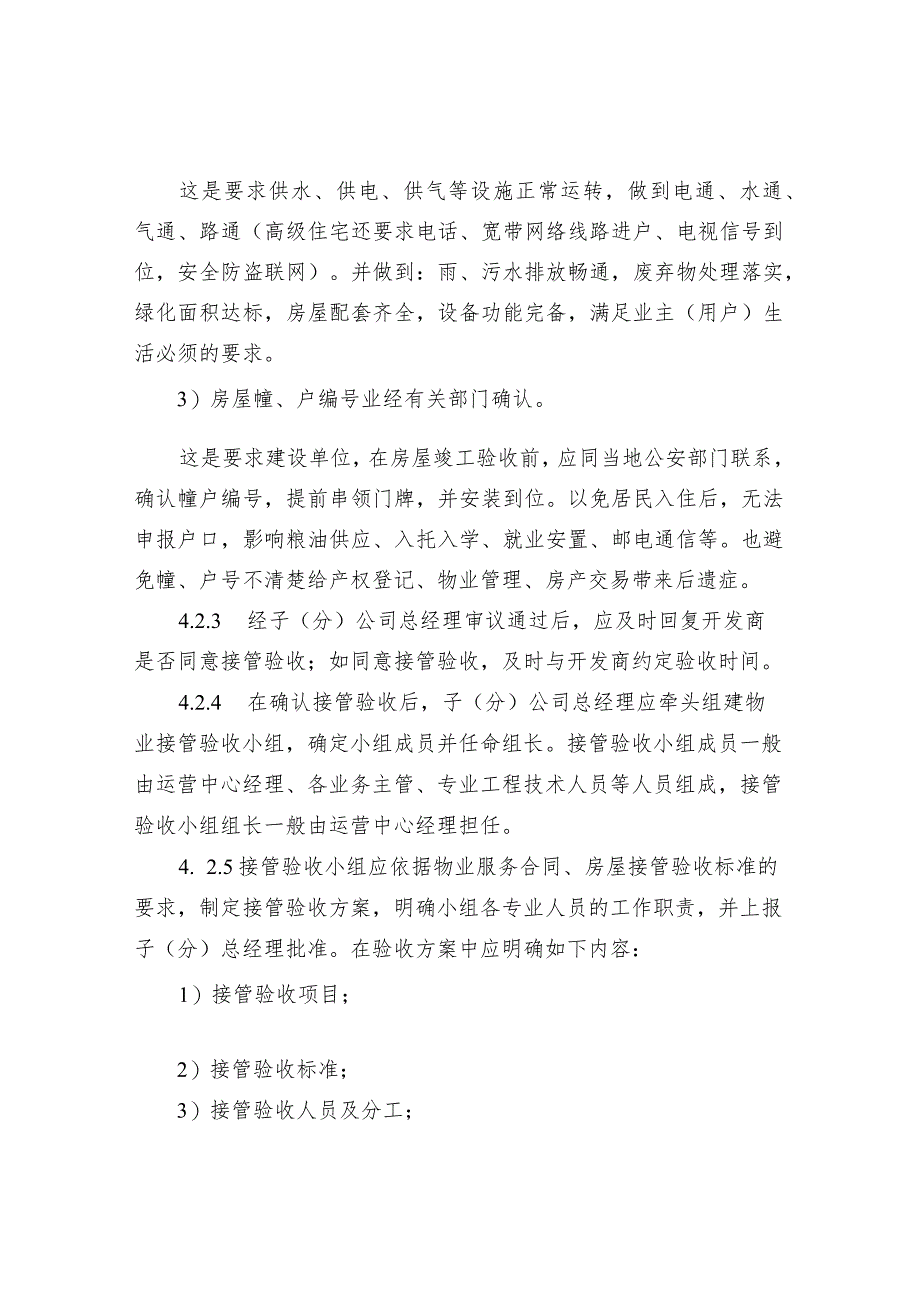 这是要求供水、供电、供气等设施正常运转，做到电通、水通、
气通、路通（高级住宅还要求电话、宽带网络线路进户、电视信号到
位，安全防盗联网）。并做到：雨、污水排放畅通，废弃物处理落实，
绿化面积达标，房屋配套齐全，设备功能完备，满足业主（用户）生
活必须的要求。
3）房屋幢、户编号业经有关部门确认。
这是要求建设单位，在房屋竣工验收前，应同当地公安部门联系，
确认幢户编号，提前串领门牌，并安装到位。以免居民入住后，无法
申报户口，影响粮油供应、入托入学、就业安置、邮电通信等。也避
免幢、户号不清楚给产权登记、物业管理、房产交易带来后遗症。
4.2.3 经子（分）公司总经理审议通过后，应及时回复开发商
是否同意接管验收；如同意接管验收，及时与开发商约定验收时间。
4.2.4 在确认接管验收后，子（分）公司总经理应牵头组建物
业接管验收小组，确定小组成员并任命组长。接管验收小组成员一般
由运营中心经理、各业务主管、专业工程技术人员等人员组成，接管
验收小组组长一般由运营中心经理担任。
4. 2.5接管验收小组应依据物业服务合同、房屋接管验收标准的
要求，制定接管验收方案，明确小组各专业人员的工作职责，并上报
子（分）总经理批准。在验收方案中应明确如下内容：
1）接管验收项目；
2）接管验收标准；
3）接管验收人员及分工；